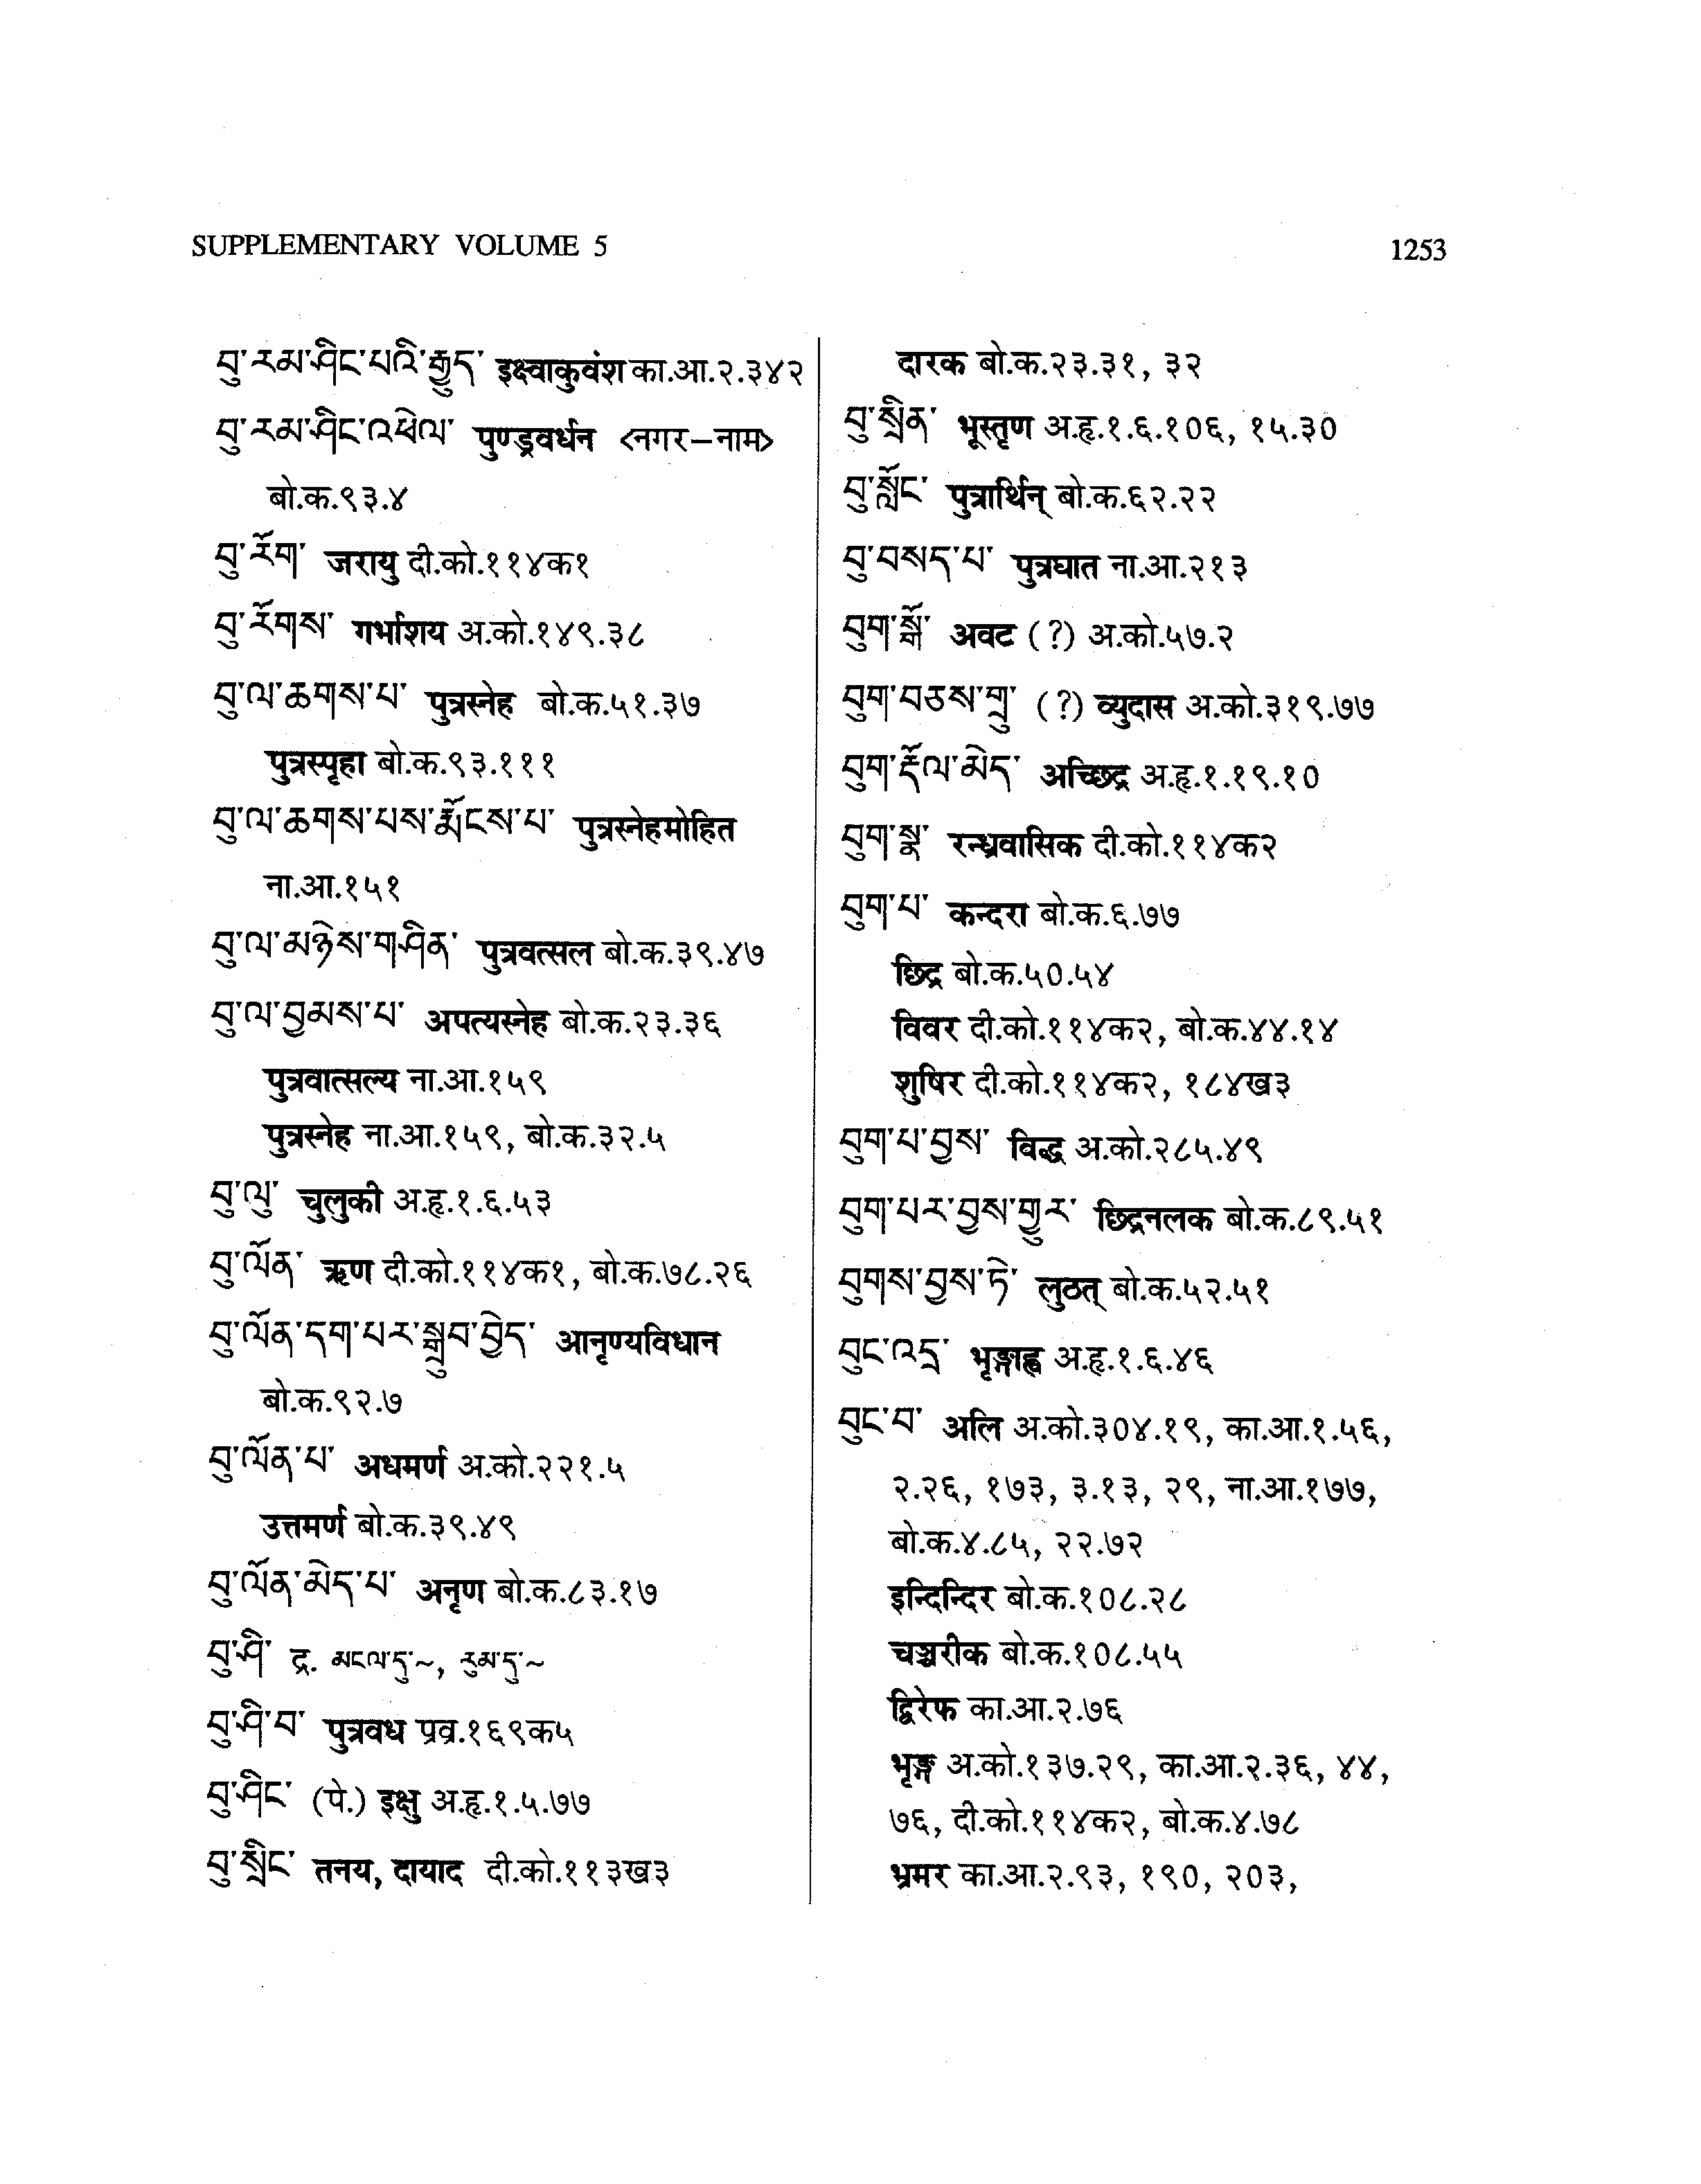 SUPPLEMENTARY VOLUME 5
1253
བུ་རམ་ཤིང་པའི་རྒྱུད་ इक्ष्वाकुवंश का.आ.२.३४२
བུ་རམ་ཤིང་འཕེལ་ पुण्ड्रवर्धन <नगर–नाम>
बो.क.९३.४
བུ་རོག་ जरायु दी.को.११४क१
བུ་རོགས་ गर्भाशय अ.को.१४९.३८
བུ་ལ་ཆགས་པ་ पुत्रस्नेह बो.क.५१.३७
पुत्रस्पृहा बो.क.९३.१११
བུ་ལ་ཆགས་པས་རྨོངས་པ་ पुत्रस्नेहमोहित
ना.आ.१५१
བུ་ལ་མཉེས་གཤིན་ पुत्रवत्सल बो.क.३९.४७
བུ་ལ་བྱམས་པ་ अपत्यस्नेह बो.क.२३.३६
पुत्रवात्सल्य ना.आ.१५९
पुत्रस्नेह ना.आ.१५९, बो.क.३२.५
བུ་ལུ་ चुलुकी अ.हृ.१.६.५३
བུ་ལོན་ ऋण दी.को.११४क१, बो.क.७८.२६
བུ་ལོན་དག་པར་སྒྲུབ་བྱེད་ आनृण्यविधान
बो.क.९२.७
བུ་ལོན་པ་ अधमर्ण अ.को.२२१.५
उत्तमर्ण बो.क.३९.४९
བུ་ལོན་མེད་པ་ अनृण बो.क.८३.१७
བུ་ཤི་ द्र. མངལ་དུ་~, རུམ་དུ་~
བུ་ཤི་བ་ पुत्रवध प्रव्र.१६९क५
བུ་ཤིང་ (पे.) इक्षु अ.हृ.१.५.७७
བུ་སྲིང་ तनय, दायाद दी.को.११३ख३
दारक बो.क.२३.३१, ३२
བུ་སྲིན་ भूस्तृण अ.हृ.१.६.१०६, १५.३०
བུ་སློང་ पुत्रार्थिन् बो.क.६२.२२
བུ་བསད་པ་ पुत्रघात ना.आ.२१३
བུག་སྒོ་ अवट (?) अ.को.५७.२
བུག་བཅས་གྲུ་ (?) व्युदास अ.को.३१९.७७
བུག་རྡོལ་མེད་ अच्छिद्र अ.हृ.१.१९.१०
བུག་སྣ་ रन्ध्रवासिक दी.को.११४क२
བུག་པ་ कन्दरा बो.क.६.७७
छिद्र बो.क.५०.५४
विवर दी.को.११४क२, बो.क.४४.१४
शुषिर दी.को.११४क२, १८४ख३
བུག་པ་བྱས་ विद्ध अ.को.२८५.४९
བུག་པར་བྱས་གྱུར་ छिद्रनलक बो.क.८९.५१
བུགས་བྱས་ཏེ་ लुठत् बो.क.५२.५१
བུང་འདྲ་ भृङ्गाह्व अ.हृ.१.६.४६
བུང་བ་ अलि अ.को.३०४.१९, का.आ.१.५६,
२.२६, १७३, ३.१३, २९, ना.आ.१७७,
बो.क.४.८५, २२.७२
इन्दिन्दिर बो.क.१०८.२८
चञ्चरीक बो.क.१०८.५५
द्विरेफ का.आ.२.७६
भृङ्ग अ.को.१३७.२९, का.आ.२.३६, ४४,
७६, दी.को.११४क२, बो.क.४.७८
भ्रमर का.आ.२.९३, १९०, २०३,